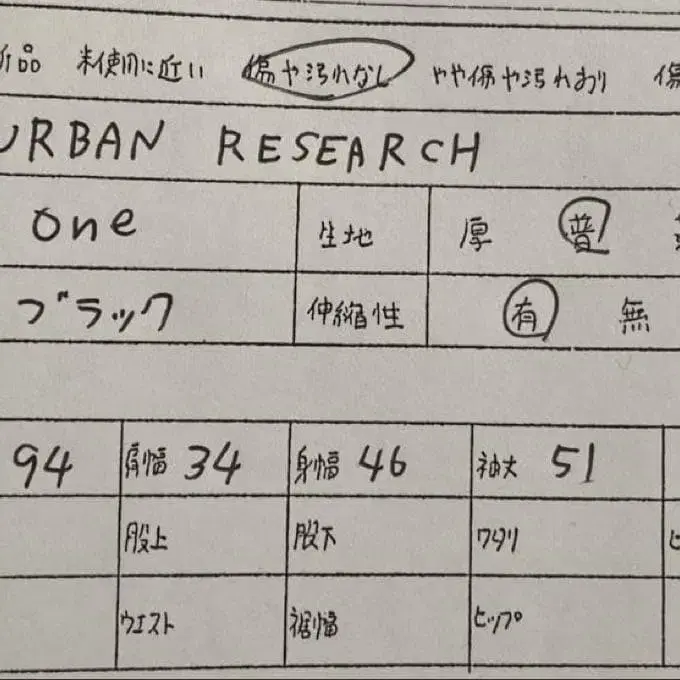 新品 未使用に近い 傷や汚れなし やや傷や汚れあり 傷
URBAN RESEARCH
one 生地 厚 普
ブラック 伸縮性 有 無
94 肩幅 34 身幅 46 袖丈 51
股上 股下 ワタリ ヒ
ウエスト 裾幅 ヒップ